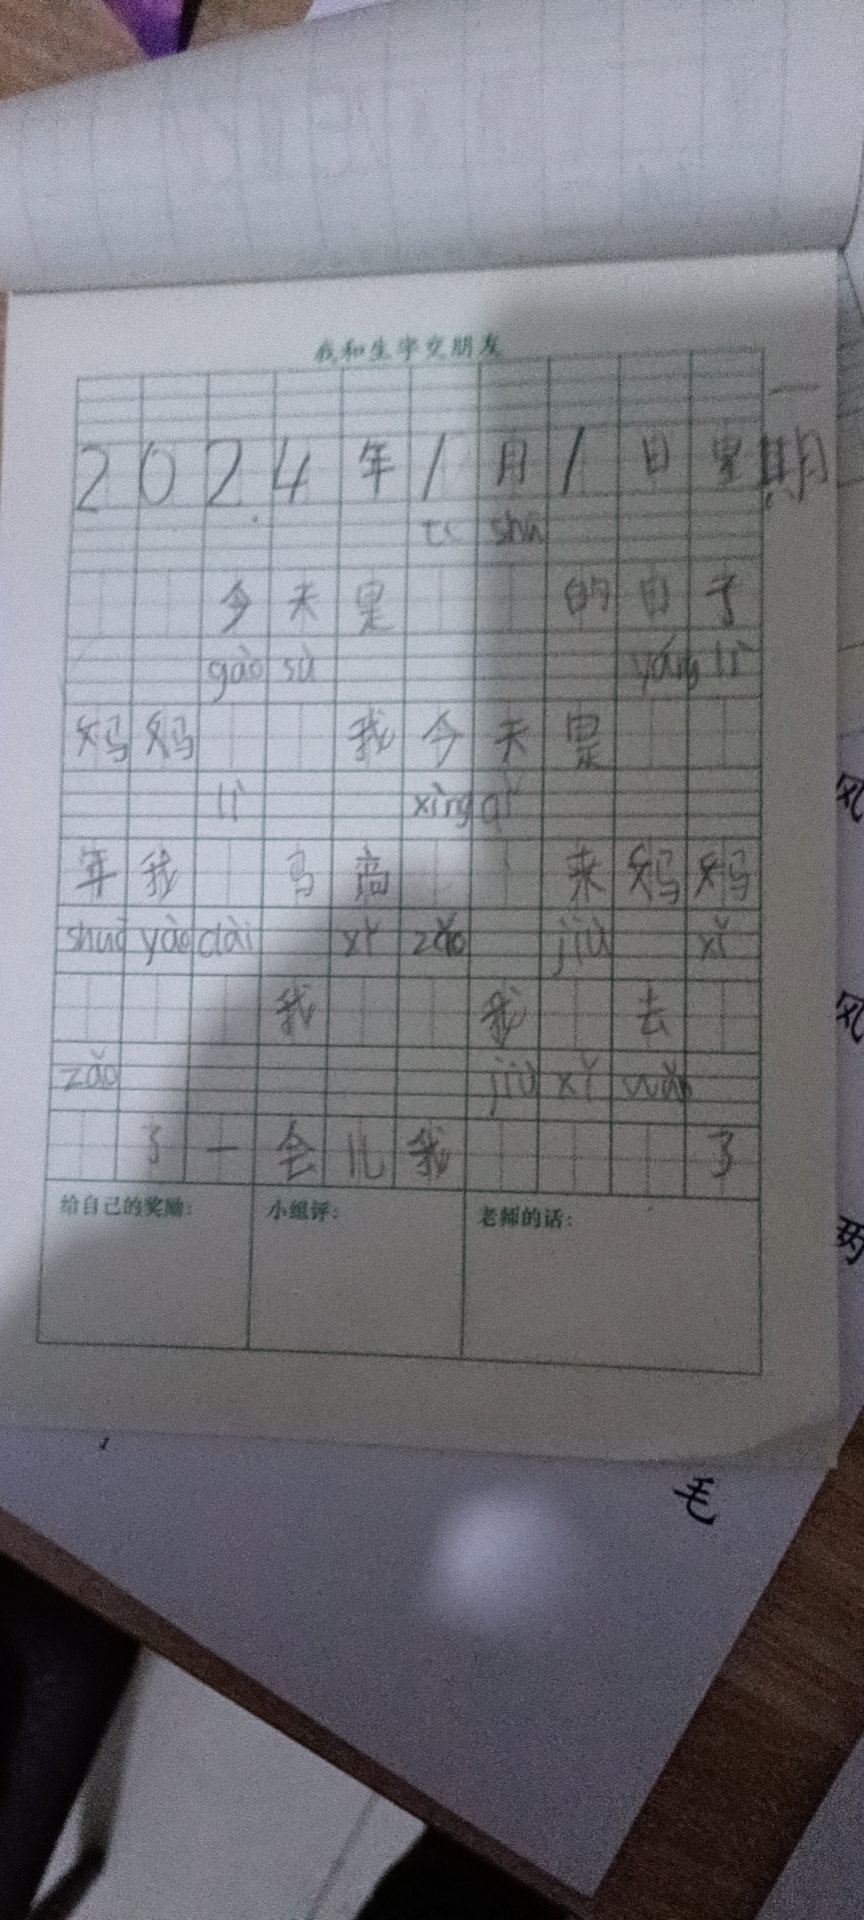 我和生字交朋友
一
2024年1月1日星期
tè shū
今天是 的日子
gào sù yáng lì
妈妈 我今天是
lì xìng qǐ
年我 马高 来妈妈
shuō yào dài xǐ zǎo jiù xǐ
我 我 去
zǎo jiù xǐ wán
了一会儿我 了
给自己的奖励: 小组评: 老师的话:
风
风
两
毛